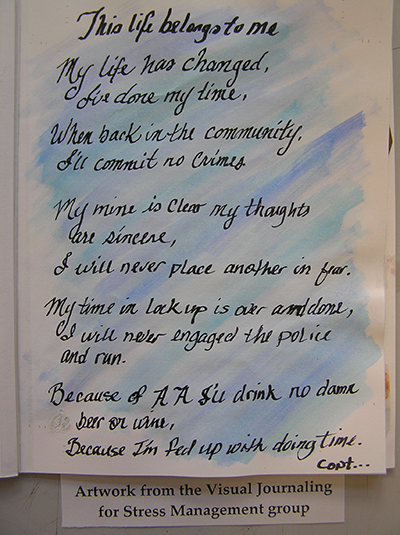 This life belongs to me
My life has changed,
I've done my time,
When back in the community,
I'll commit no crimes.
My mine is clear my thoughts
are sincere,
I will never place another in fear.
My time in lock up is over and done,
I will never engaged the police
and run.
Because of AA I'll drink no damn
beer or wine,
Because I'm fed up with doing time.
Cont...
Artwork from the Visual Journaling
for Stress Management group